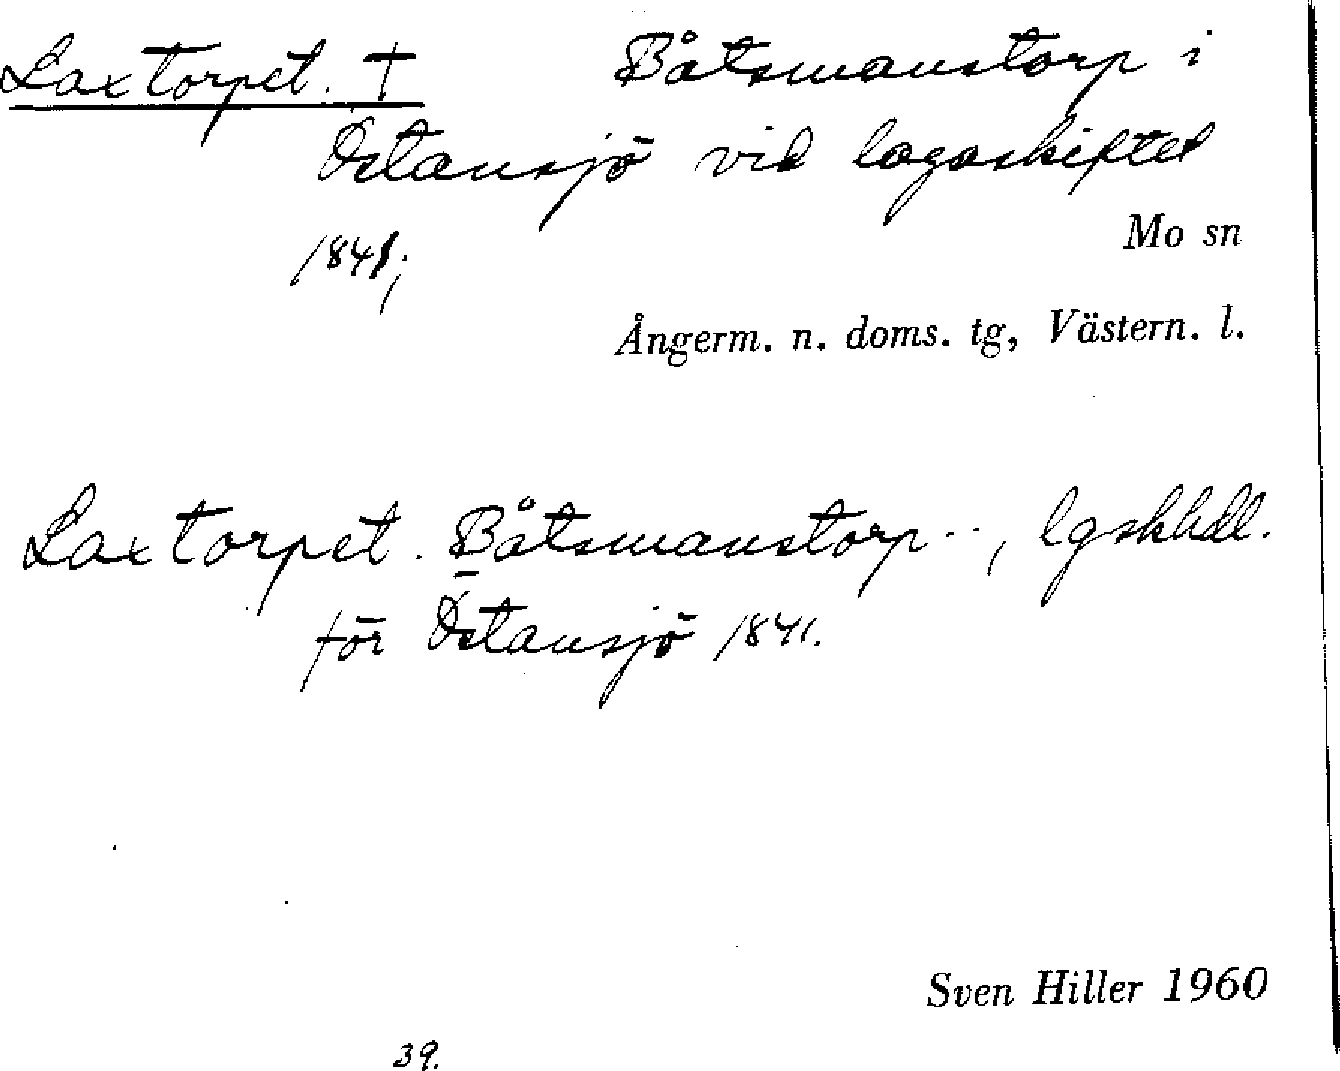 Laxtorpet. † Båtsmanstorp i
Östansjö vid lagaskiftet
1841;
Mo sn
Ångerm. n. doms. tg, Västern. l.
Laxtorpet. Båtsmanstorp.., lgskhdl.
för Östansjö 1841.
Sven Hiller 1960
39.